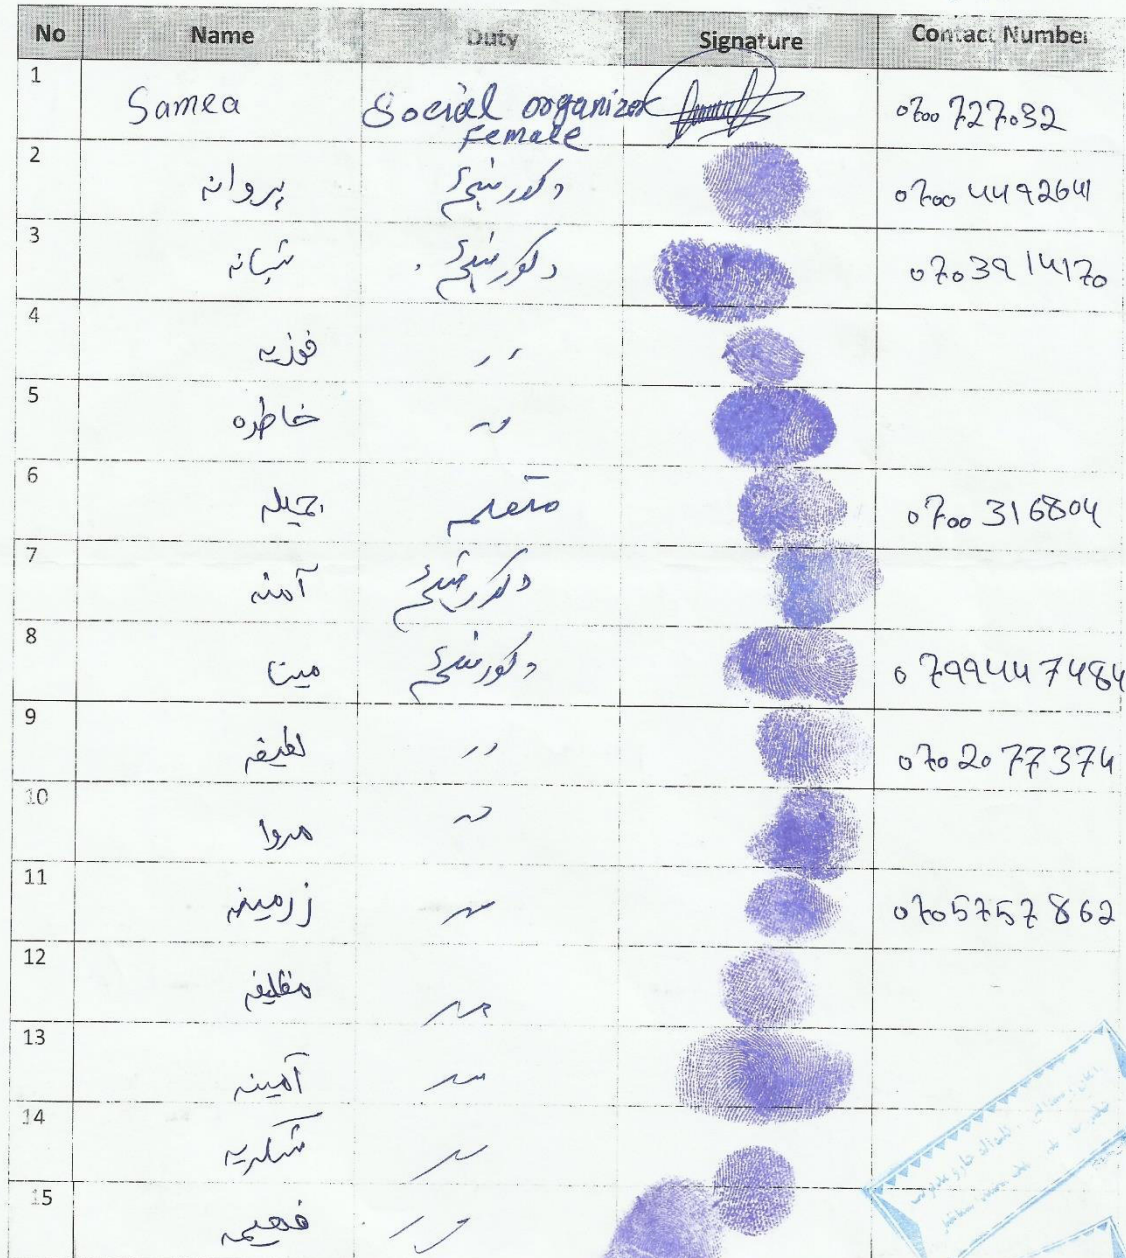 No Name Duty Signature Contact Number
1 Samea Social organizer Female 0700727032
2 پروانه د کور میرمنې 0700 4492641
3 شبانه د کور میرمنې 0703914170
4 فوزیه رر
5 خاطره
6 جمیله متعلمه 0700 316804
7 آمنه د کور میرمنې
8 مینا د کور میرمنې 0799447484
9 لطیفه رر 0702077374
10 مروا
11 زرمینه 0705757862
12
13 آمینه
14 شکریه
15 فهیمه رر